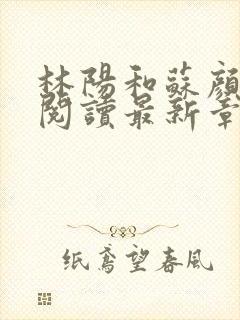 林陽和蘇顏
閱讀最新章
纸鳶望春風